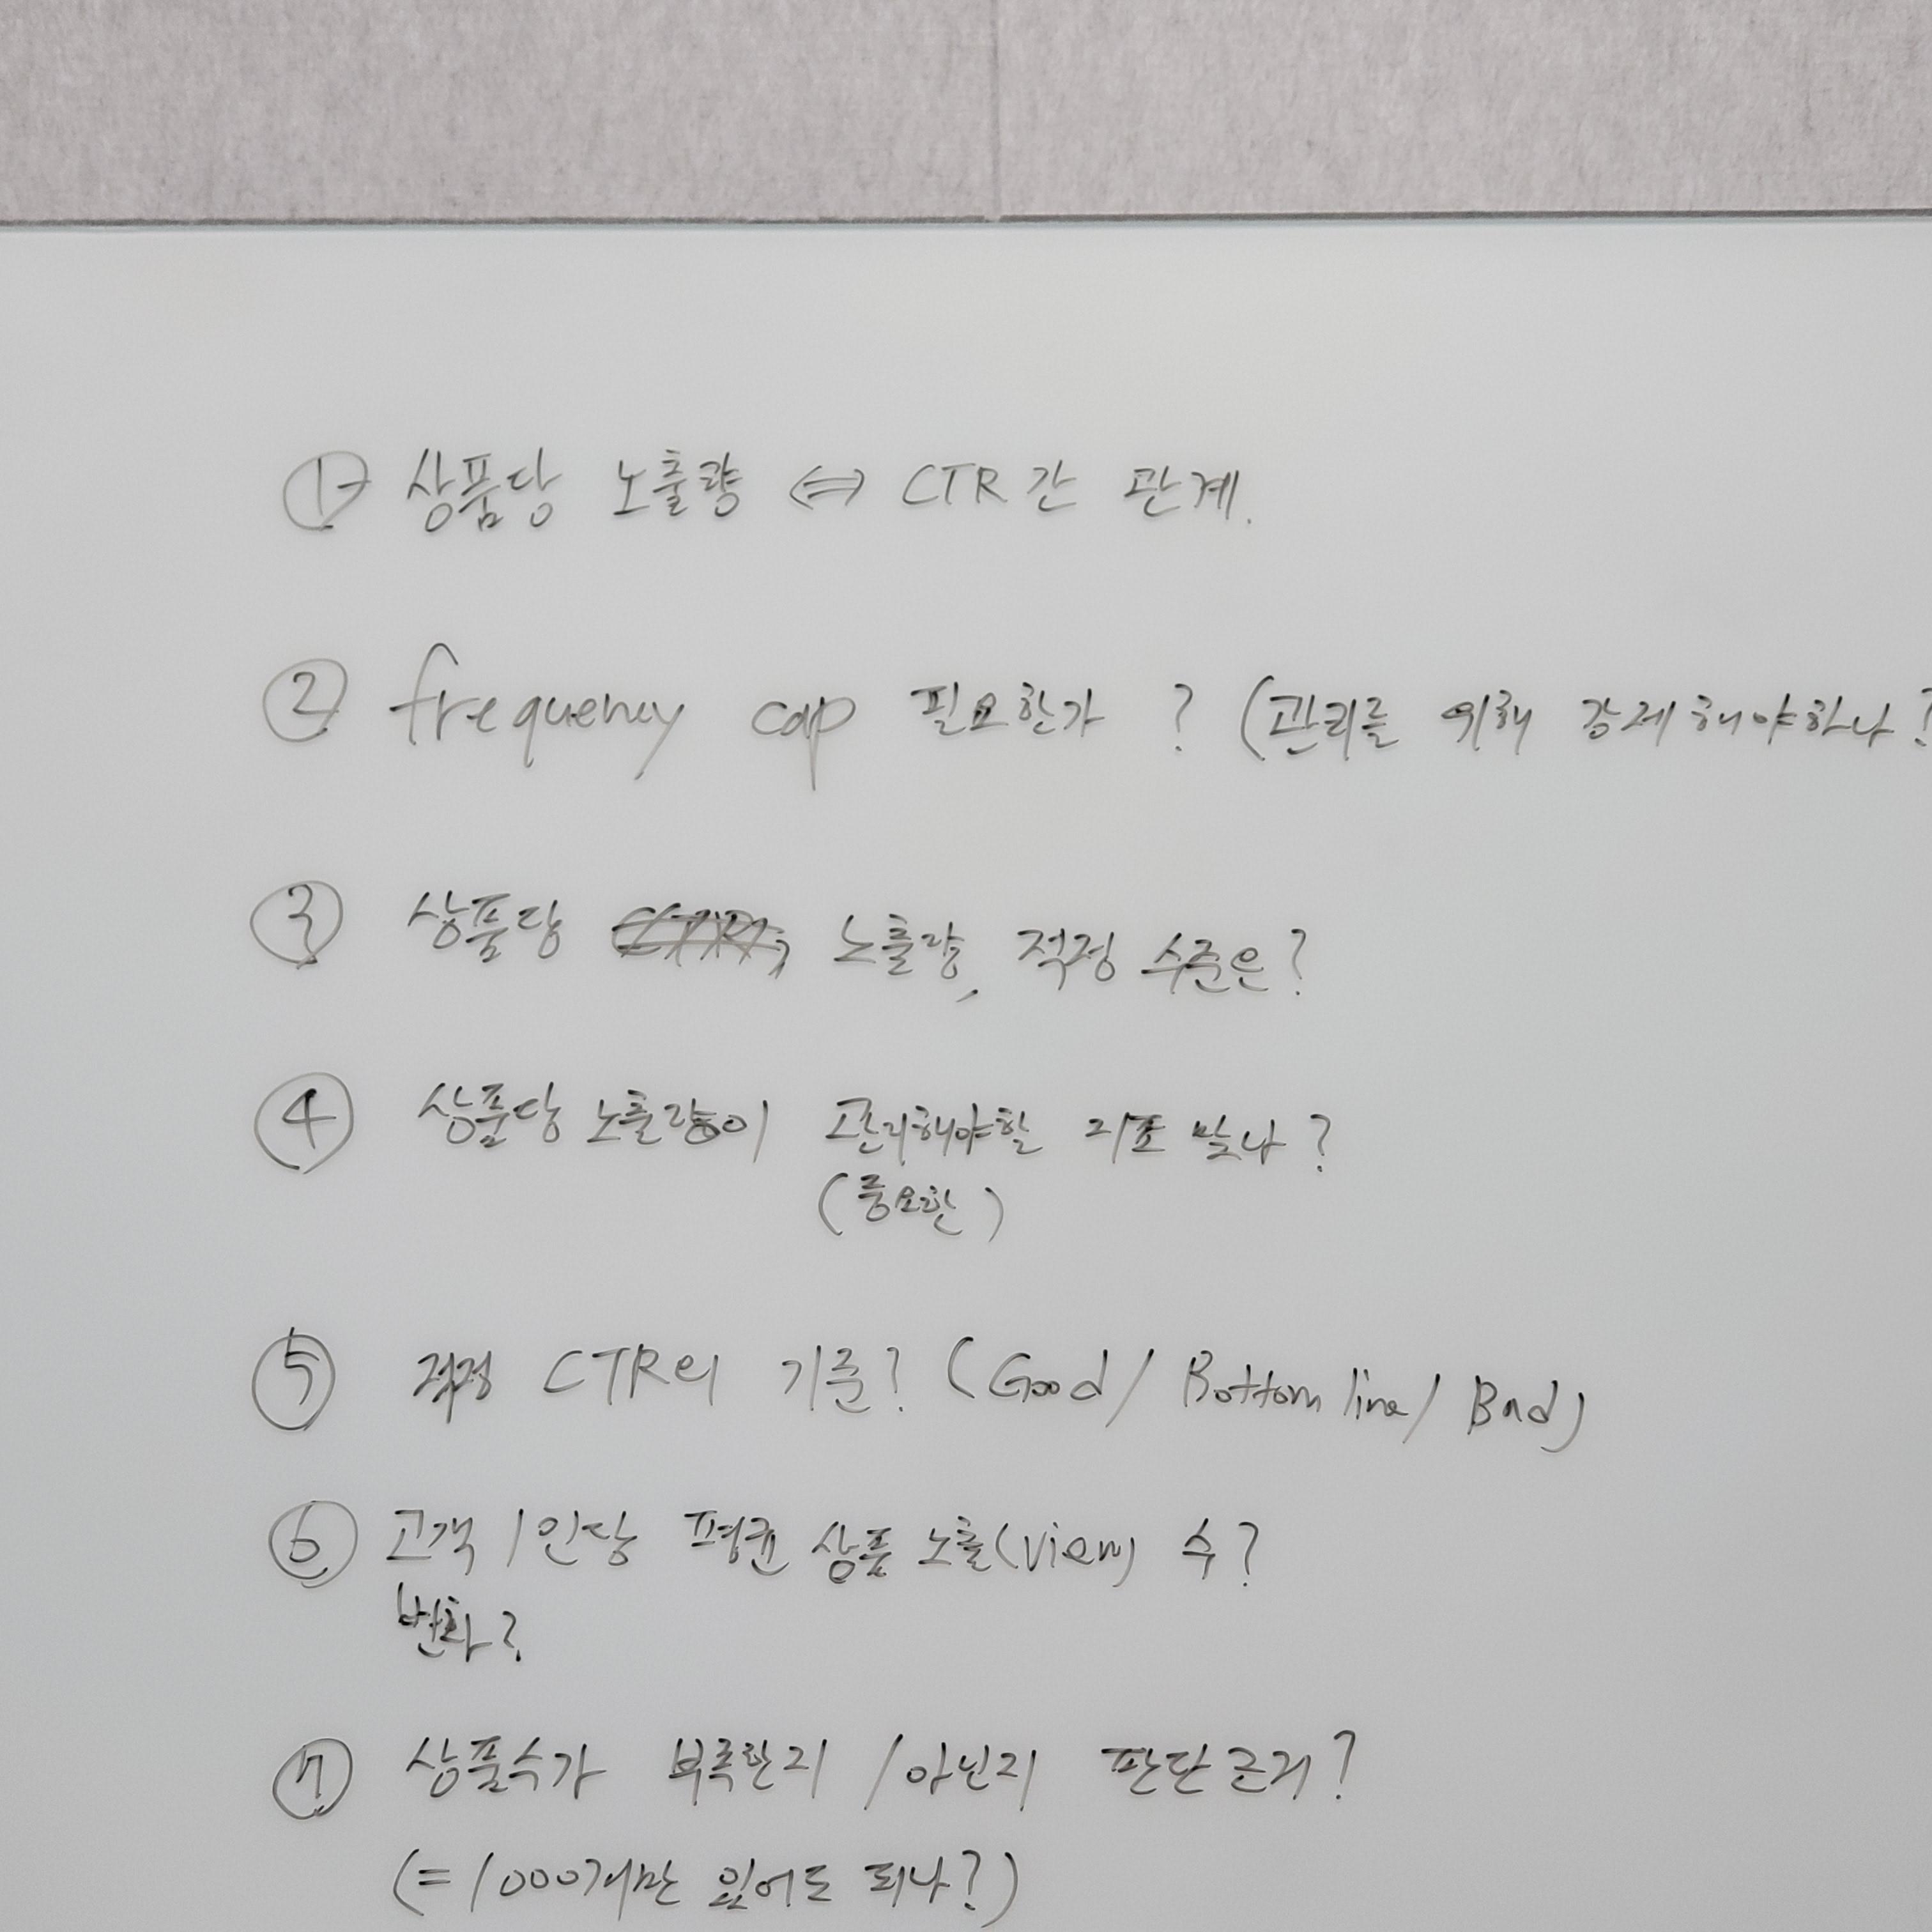 ① 상품당 노출량 ⇔ CTR간 관계.
② frequency cap 필요한가? (관리를 위해 강제해야하나?
③ 상품당 노출량, 적정 수준은?
④ 상품당 노출량이 관리해야할 지표 맞나?
(중요한)
⑤ 적정 CTR의 기준? (Good/ Bottom line/ Bad)
⑥ 고객 1인당 평균 상품 노출(view) 수?
변화?
⑦ 상품수가 부족한지 / 아닌지 판단 근거?
(= 1000개만 있어도 되나?)